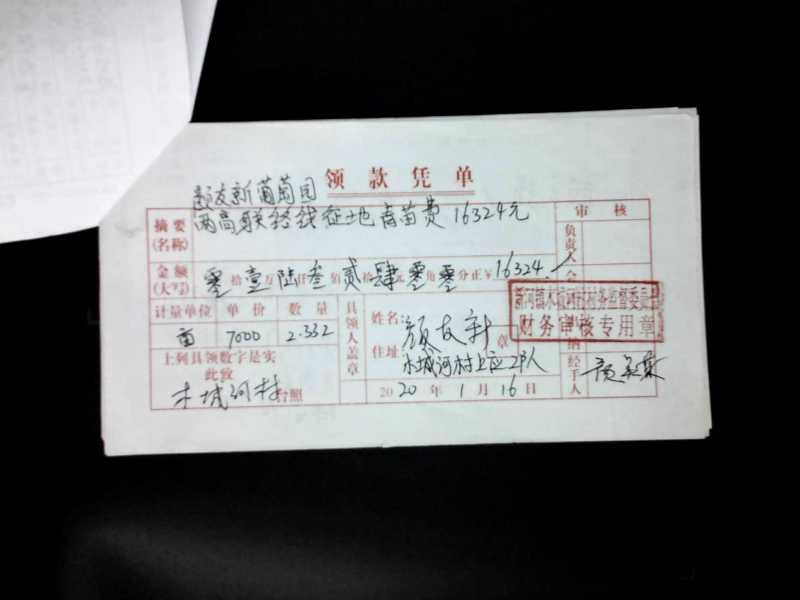 领款凭单
颜友新葡萄园
摘要(名称) 两高联络线征地青苗费16324元 审核
负责人
金额(大写) 零拾壹万陆仟叁佰贰拾肆元零角零分正￥16324 会
计量单位 单价 数量 具领人盖章 姓名 颜友新 章
亩 7000 2.332 住址 木城河村上应2队
新河镇木城河村村务监督委员会
财务审核专用章
上列具领数字是实
此致
木城河村台照
2020年1月16日
纳
经手人